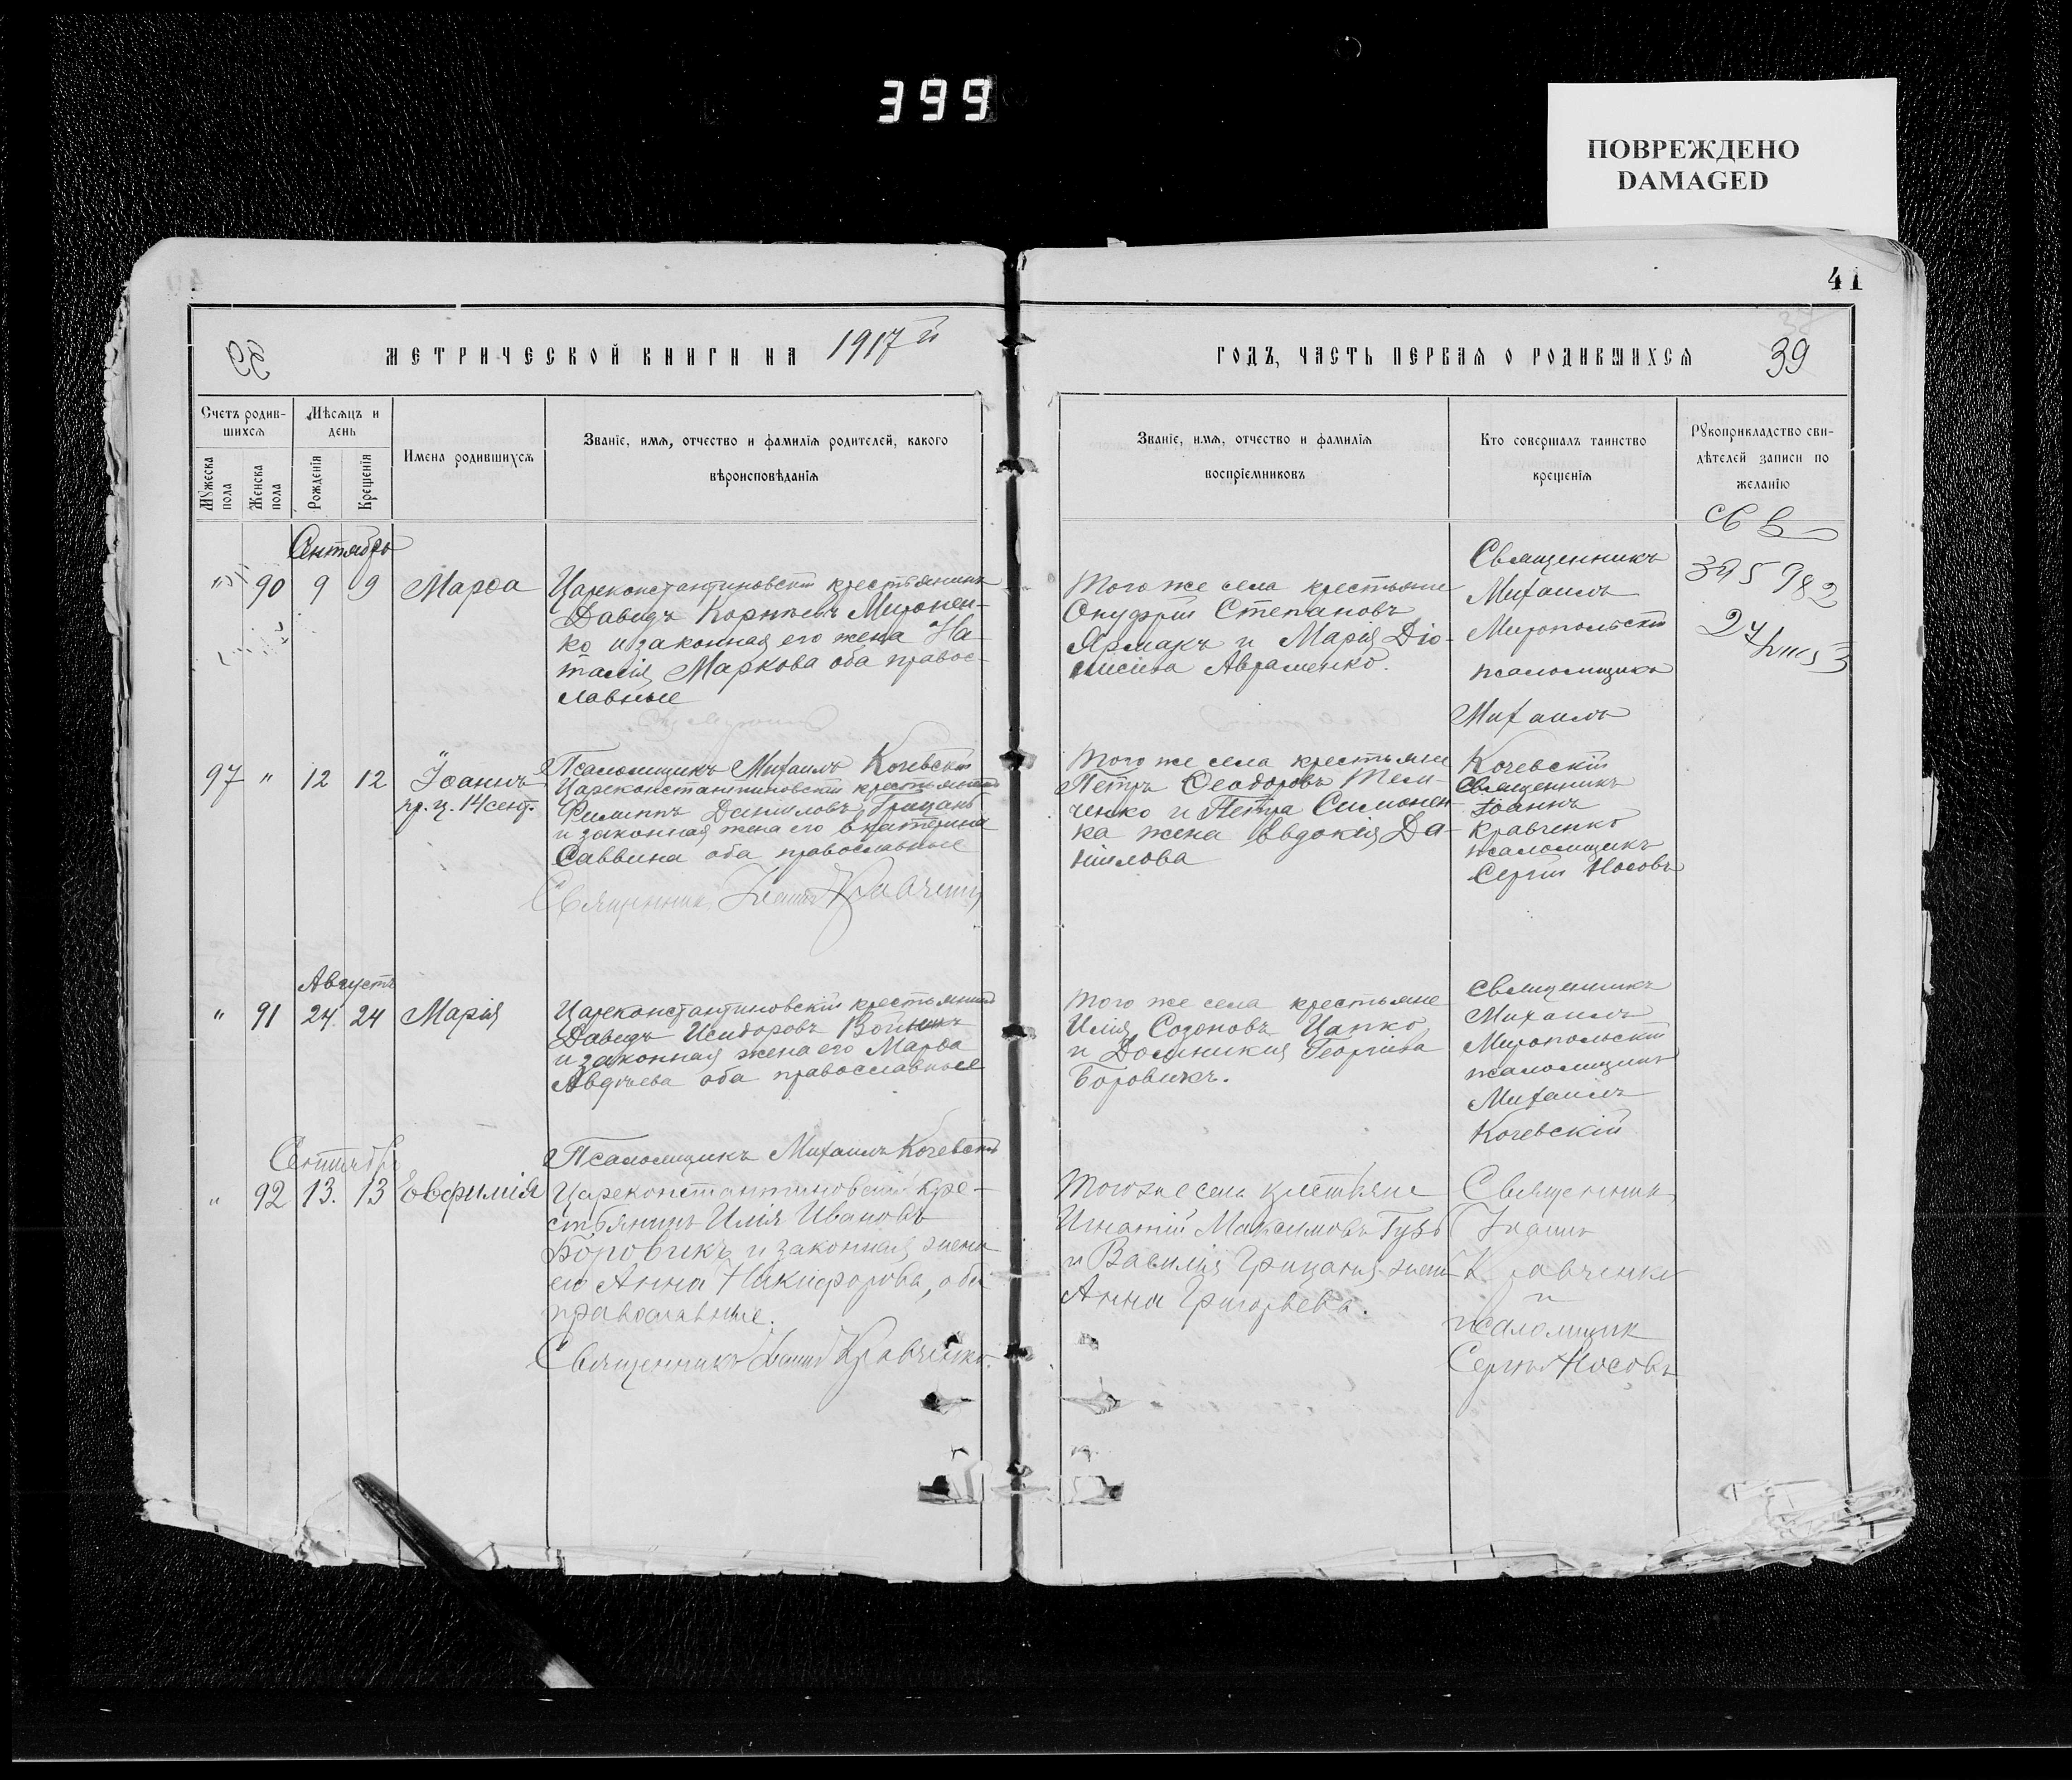 399
ПОВРЕЖДЕНО
DAMAGED
41
39
МЕТРИЧЕСКОЙ КНИГИ НА 1917й
ГОДЪ, ЧАСТЬ ПЕРВАЯ О РОДИВШИХСЯ
39
Счетъ родив-
шихся
Мужеска пола
Женска пола
Мѣсяцъ и
день
Рожденія
Крещенія
Имена родившихся
Званіе, имя, отчество и фамилія родителей, какого
вѣроисповѣданія
Званіе, имя, отчество и фамилія
воспріемниковъ
Кто совершалъ таинство
крещенія
Рукоприкладство сви-
дѣтелей записи по
желанію
Сентябрь
" 90 9 9 Марѳа
Цареконстантиновскій крестьянинъ
Давидъ Корнѣевъ Миронен-
ко и законная его жена На-
талія Маркова оба правос-
лавные
Того же села крестьяне
Онуфрій Степановъ
Ярмакъ и Марія Діо-
нисіева Авраменко.
Священникъ
Михаилъ
Миропольскій
псаломщикъ
Михаилъ
Кочевскій
395982
Псаломщикъ Михаилъ Кочевскій
97 " 12 12 Іоаннъ
пр. ц. 14 сент.
Цареконстантиновскій крестьянинъ
Филиппъ Даниловъ Грицань
и законная жена его Екатерина
Саввина оба православные
Священникъ Іоаннъ Кравченко
Того же села крестьяне
Петръ Ѳеодоровъ Тели-
ченко и Петра Симонен-
ка жена Евдокія Да-
ніилова
Священникъ
Іоаннъ
Кравченко
псаломщикъ
Сергій Носовъ
Августъ
" 91 24 24 Марія
Цареконстантиновскій крестьянинъ
Давидъ Исидоровъ
и законная жена его Марѳа
Авдѣева оба православные
Псаломщикъ Михаилъ Кочевскій
Того же села крестьяне
Илія Созоновъ Цапко
и Домникія Георгіева
Боровикъ.
Священникъ
Михаилъ
Миропольскій
псаломщикъ
Михаилъ
Кочевскій
Сентябрь
" 92 13. 13 Евфимія
Цареконстантиновскій кре-
стьянинъ Илія Ивановъ
Боровикъ и законная жена
его Анна Никифорова, оба
православные.
Священникъ Іоаннъ Кравченко.
Того же села крестьяне
Игнатій Максимовъ Гузь
и Василія Грицаня жена
Анна Григорьева.
Священникъ
Іоаннъ
Кравченко
и
псаломщик
Сергій Носовъ